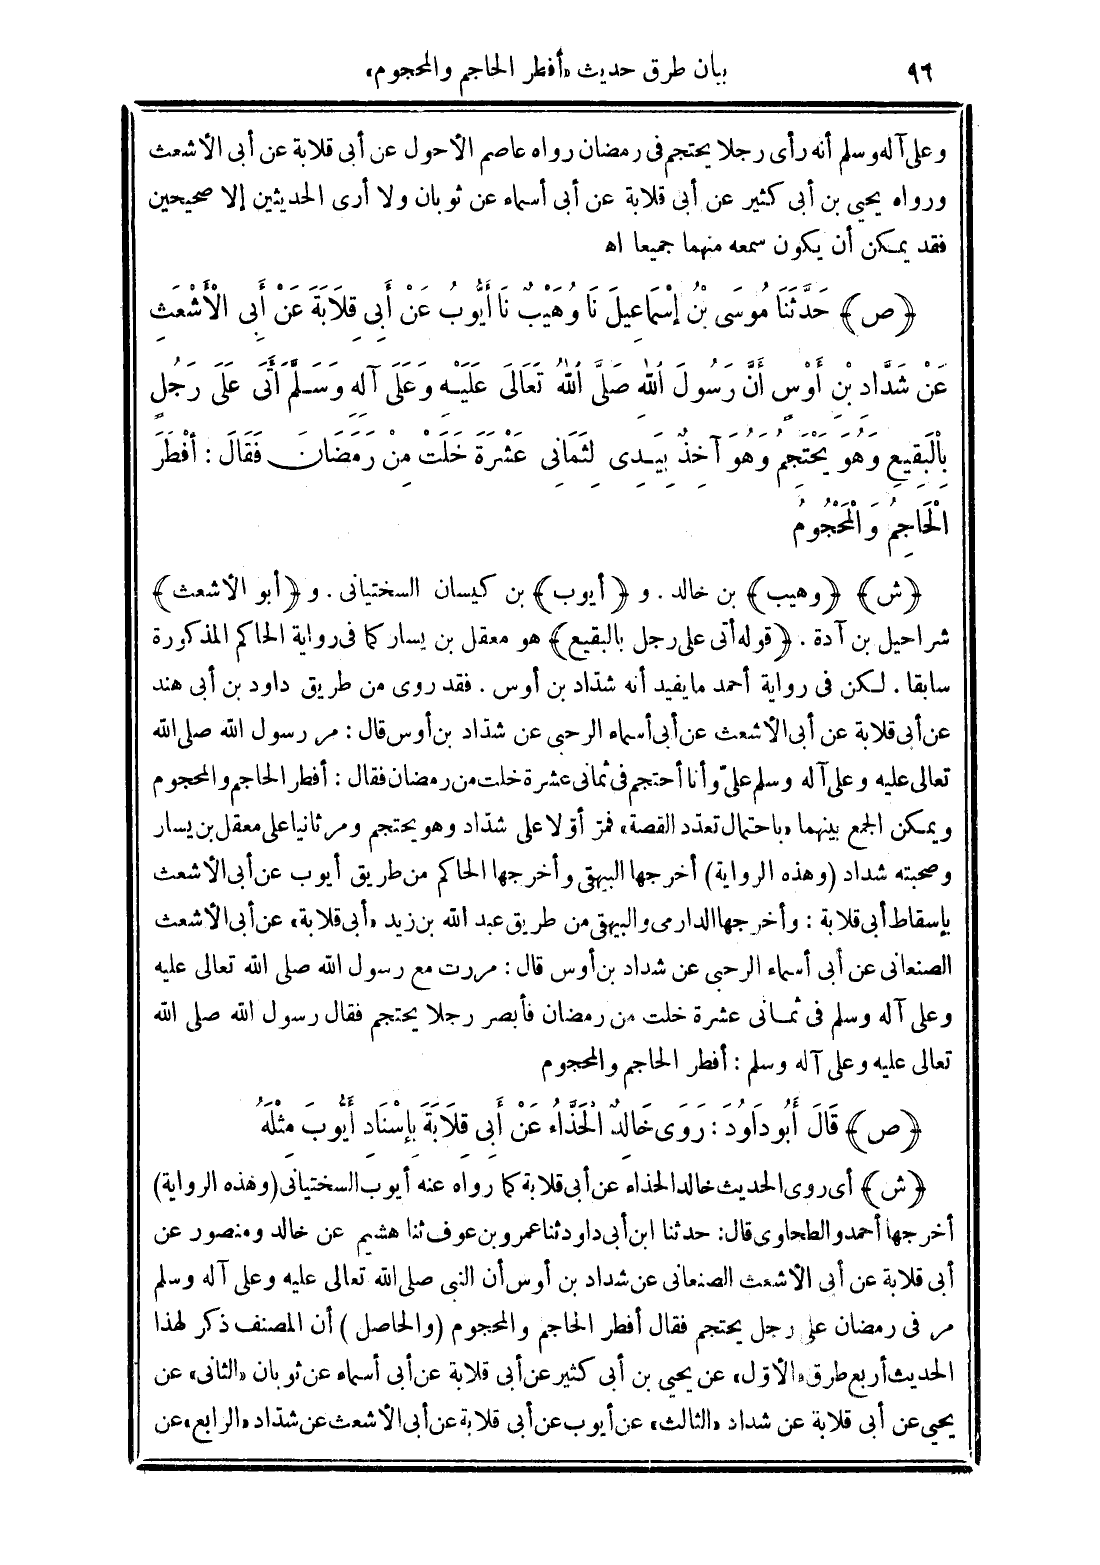 ٩٦ بيان طرق حديث «أفطر الحاجم والمحجوم»
وعلى آله وسلم أنه رأى رجلا يحتجم فى رمضان رواه عاصم الأحول عن أبى قلابة عن أبى الأشعث
ورواه يحيى بن أبى كثير عن أبى قلابة عن أبى أسماء عن ثوبان ولا أرى الحديثين إلا صحيحين
فقد يمكن أن يكون سمعه منهما جميعا اهـ
﴿ص﴾ حَدَّثَنَا مُوسَى بْنُ إِسْمَاعِيلَ نَا وُهَيْبٌ نَا أَيُّوبُ عَنْ أَبِى قِلَابَةَ عَنْ أَبِى الْأَشْعَثِ
عَنْ شَدَّادِ بْنِ أَوْسٍ أَنَّ رَسُولَ اللهِ صَلَّى اللهُ تَعَالَى عَلَيْهِ وَعَلَى آلِهِ وَسَلَّمَ أَتَى عَلَى رَجُلٍ
بِالْبَقِيعِ وَهُوَ يَحْتَجِمُ وَهُوَ آخِذٌ بِيَدِى لِثَمَانِى عَشْرَةَ خَلَتْ مِنْ رَمَضَانَ فَقَالَ : أَفْطَرَ
الْحَاجِمُ وَالْمَحْجُومُ
﴿ش﴾ ﴿وهيب﴾ بن خالد . و ﴿أيوب﴾ بن كيسان السختيانى . و ﴿أبو الأشعث﴾
شراحيل بن آدة . ﴿قوله أتى على رجل بالبقيع﴾ هو معقل بن يسار كما فى رواية الحاكم المذكورة
سابقا . لكن فى رواية أحمد مايفيد أنه شدّاد بن أوس . فقد روى من طريق داود بن أبى هند
عن أبى قلابة عن أبى الأشعث عن أبى أسماء الرحبى عن شدّاد بن أوس قال : مر رسول الله صلى الله
تعالى عليه وعلى آله وسلم علىّ وأنا أحتجم فى ثمانى عشرة خلت من رمضان فقال : أفطر الحاجم والمحجوم
ويمكن الجمع بينهما «باحتمال تعدّد القصة» فمرّ أوّلا على شدّاد وهو يحتجم ومر ثانيا على معقل بن يسار
وصحبته شداد (وهذه الرواية) أخرجها البيهقى وأخرجها الحاكم من طريق أيوب عن أبى الأشعث
بإسقاط أبى قلابة : وأخرجها الدارمى والبيهقى من طريق عبد الله بن زيد «أبى قلابة» عن أبى الأشعث
الصنعانى عن أبى أسماء الرحبى عن شداد بن أوس قال : مررت مع رسول الله صلى الله تعالى عليه
وعلى آله وسلم فى ثمانى عشرة خلت من رمضان فأبصر رجلا يحتجم فقال رسول الله صلى الله
تعالى عليه وعلى آله وسلم : أفطر الحاجم والمحجوم
﴿ص﴾ قَالَ أَبُو دَاوُدَ : رَوَى خَالِدٌ الْحَذَّاءُ عَنْ أَبِى قِلَابَةَ بِإِسْنَادِ أَيُّوبَ مِثْلَهُ
﴿ش﴾ أى روى الحديث خالد الحذاء عن أبى قلابة كما رواه عنه أيوب السختيانى (وهذه الرواية)
أخرجها أحمد والطحاوى قال: حدثنا ابن أبى داود ثنا عمرو بن عوف ثنا هشيم عن خالد ومنصور عن
أبى قلابة عن أبى الأشعث الصنعانى عن شداد بن أوس أن النبى صلى الله تعالى عليه وعلى آله وسلم
مر فى رمضان على رجل يحتجم فقال أفطر الحاجم والمحجوم (والحاصل) أن المصنف ذكر لهذا
الحديث أربع طرق «الأوّل» عن يحيى بن أبى كثير عن أبى قلابة عن أبى أسماء عن ثوبان «الثانى» عن
يحيى عن أبى قلابة عن شداد «الثالث» عن أيوب عن أبى قلابة عن أبى الأشعث عن شدّاد «الرابع» عن